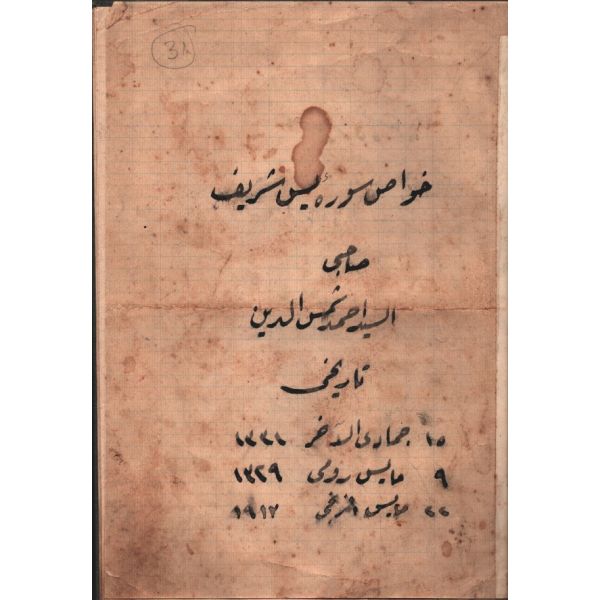 34
خواص سورهٔ يس شريف
صاحبى
السيد احمد شمس الدين
تاريخى
١٥ جمادى الاخر ١٣٣١
٩ مايس رومى ١٣٢٩
٢٢ مايس افرنجى ١٩١٣